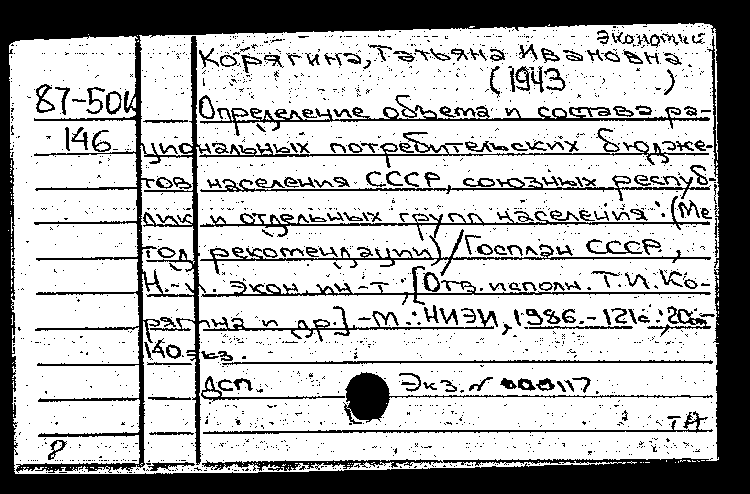 Экономист
Корягина, Татьяна Ивановна.
(1943 )
87-50К Определение объема и состава ра-
146 циональных потребительских бюдже-
тов населения СССР, союзных респуб-
лик и отдельных групп населения: (Ме
тод. рекомендации) / Госплан СССР,
Н.-и. экон. ин-т ; [Отв. исполн. Т.И. Ко-
рягина и др.]. - М. : НИЭИ, 1986. - 121с.; 20см
140 экз.
ДСП. Экз. № 000117.
ТА
8